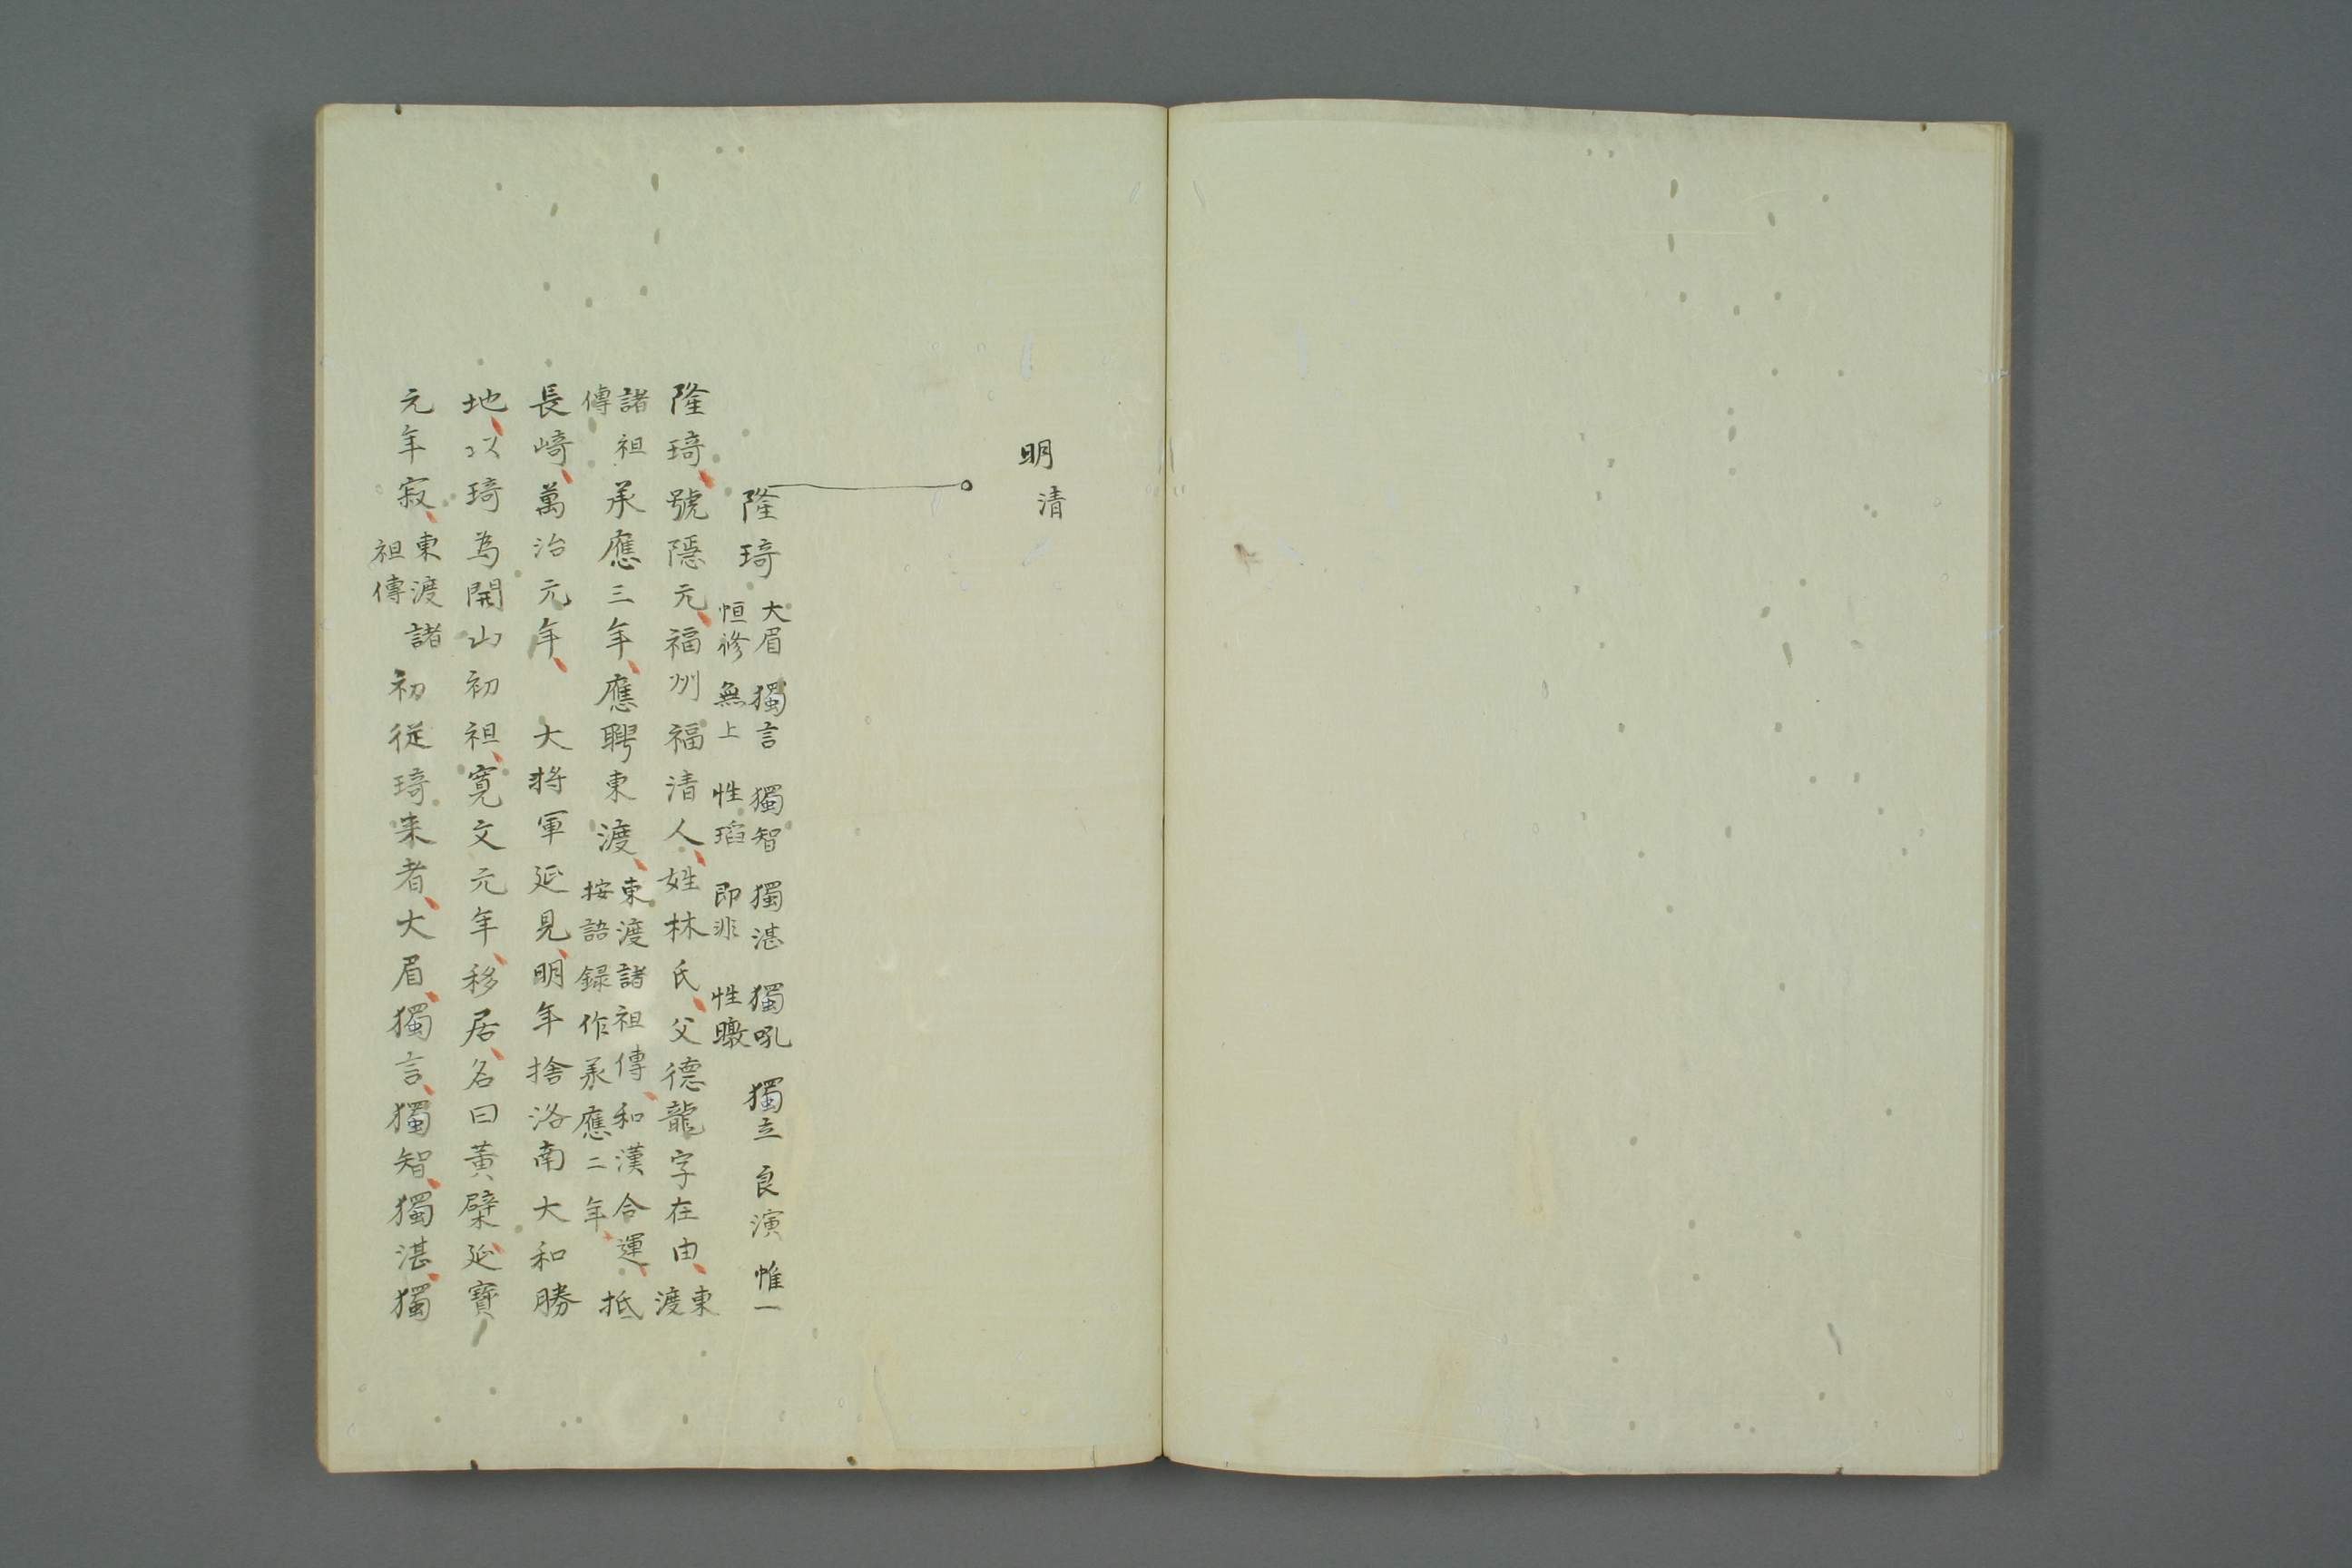 明
清
隆琦 大眉 獨言 獨智 獨湛 獨吼 獨立 良演 惟一
恒修 無上 性瑫 即非 性暾
隆琦、號隱元、福州福清人、姓林氏、父德龍字在由、東
渡
諸祖
傳
承應三年、應聘東渡、東渡諸祖傳、和漢合運、
按語録作承應二年、
抵
長崎、萬治元年、 大将軍延見、明年捨洛南大和勝
地、以琦為開山初祖、寛文元年、移居、名曰黃檗、延寶
元年寂、東渡諸
祖傳
初従琦来者、大眉、獨言、獨智、獨湛、獨